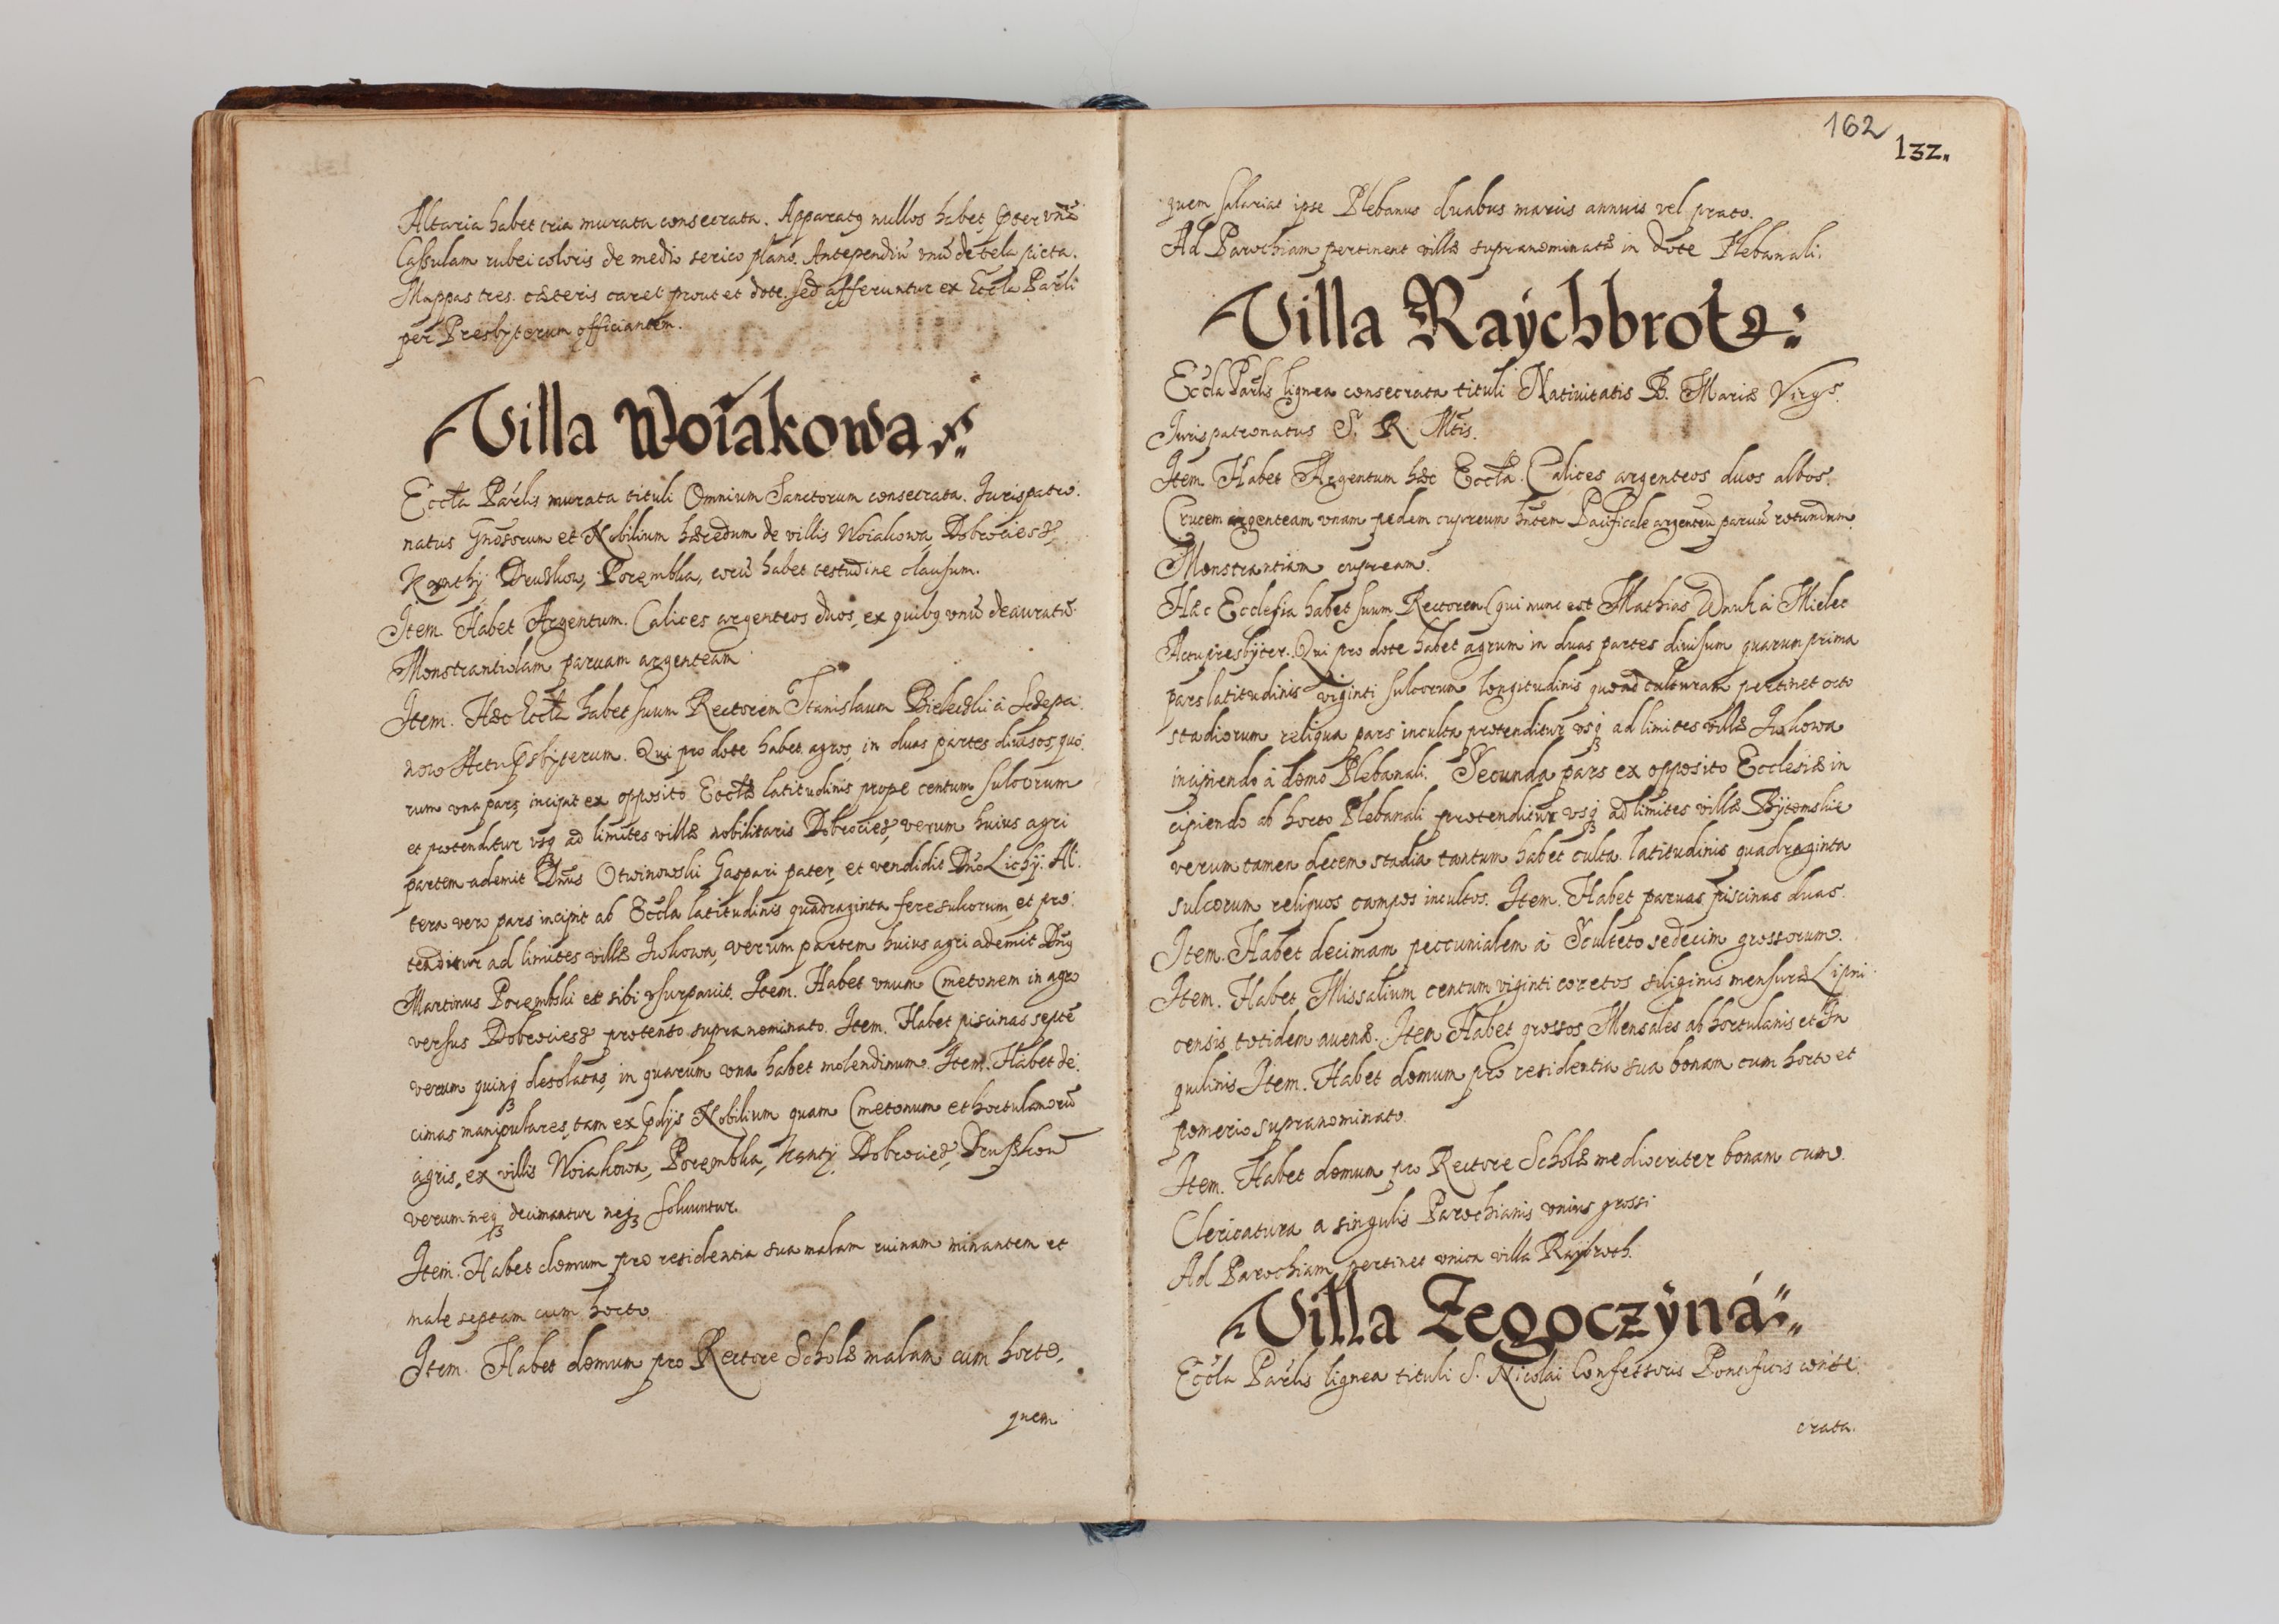 Altaria habet tria murata consecrata. Apparatq nullos habet, pter vnã
Cassulam rubei coloris de medio serico plano. Antependiũ vnũ de tela picta.
Mappas tres. cæteris caret prout et dote. sed afferuntur ex Eccla Parli
per Presbyterum officiantem.
Villa Woiakowa
Eccla Parlis murata tituli Omnium Sanctorum consecrata. Iurispatro:
natus Gnosorum et Nobilium hæredum de villis Woiakowa, Dobrociesz,
Kąnthy Druszkow, Porembka, chorũ habet testudine clausum.
Item. Habet Argentum. Calices argenteos duos, ex quibq vnũ deauratũ.
Monstrantiolam paruam argenteam
Item. Hæc Eccla habet suum Rectorem Stanislaum Bieleczki à Sczepa:
now Actupsbyterum. Qui pro dote habet agros, in duas partes diuisos, quo:
rum vna pars, incipit ex opposito Ecclæ latitudinis prope centum sulcorum
et protenditur vsq ad limites villæ nobilitaris Dobrociesz, verum huius agri
partem ademit Dnus Otwinowski Gaspari pater, et vendidit Dno Lichy. Al:
tera vero pars incipit ab Eccla latitudinis quadraginta fere sulcorum, et pro:
tenditur ad limites villæ Iukowa, verum partem huius agri ademit Dnq
Martinus Porembski et sibi vsurpauit. Item. Habet vnum Cmetonem in agro
versus Dobrociesz protento supra nominato. Item. Habet piscinas septẽ
verum quinq desolatas, in quarum vna habet molendinum. Item. Habet de:
cimas manipulares, tam ex pdijs Nobilium quam Cmetonum et hortulanorũ
agris, ex villis Woiakowa, Porembka, Kąnty, Dobrociesz, Druszkow
verum neq decimantur neq soluuntur.
Item. Habet domum pro residentia sua malam ruinam minantem et
male septam cum horto.
Item. Habet domum pro Rectore Scholæ malam cum horto,
quem
162
132.
quem salariat ipse Plebanus duabus marcis annuis vel prato.
Ad Parochiam pertinent villæ supranominatæ in dote Plebanali.
Villa Raychbrot
Eccla Parlis lignea consecrata tituli Natiuitatis B. Mariæ Virgs.
Iuris patronatus S. R. Mtis.
Item. Habet Argentum hæc Eccla. Calices argenteos duos albos.
Crucem argenteam vnam pedem cupreum hñtem Pacificale argenteũ paruũ rotundum.
Monstrantiam cupream.
Hæc Ecclesia habet suum Rectorem (qui nunc est Mathias Wnuk à Mielec
Actupresbyter. Qui pro dote habet agrum in duas partes diuisum quarum prima
pars latitudinis viginti sulcorum longitudinis quoad culturam pertinet octo
stadiorum reliqua pars inculta protenditur vsq ad limites villæ Iukowa
incipiendo à domo Plebanali. Secunda pars ex opposito Ecclesiæ in
cipiendo ab horto Plebanali protenditur vsq ad limites villæ Bytomskie
verum tamen decem stadia tantum habet culta. latitudinis quadraginta
sulcorum reliquos campos incultos. Item. Habet paruas piscinas duas.
Item. Habet decimam peccunialem à Sculteto sedecim grossorum.
Item. Habet Missalium centum viginti coretos siliginis mensuræ Lipni:
censis totidem auenæ. Item Habet grossos Mensales ab hortulanis et In
quilinis Item. Habet domum pro residentia sua bonam cum horto et
pomerio supranominato.
Item. Habet domum pro Rectore Scholæ mediocriter bonam cum.
Clericatura a singulis Parochianis vnius grossi
Ad Parochiam pertinet vnica villa Raybroth.
Villa Zegoczyná
Eccla Parlis lignea tituli S. Nicolai Confessoris Pontificis conse:
crata.